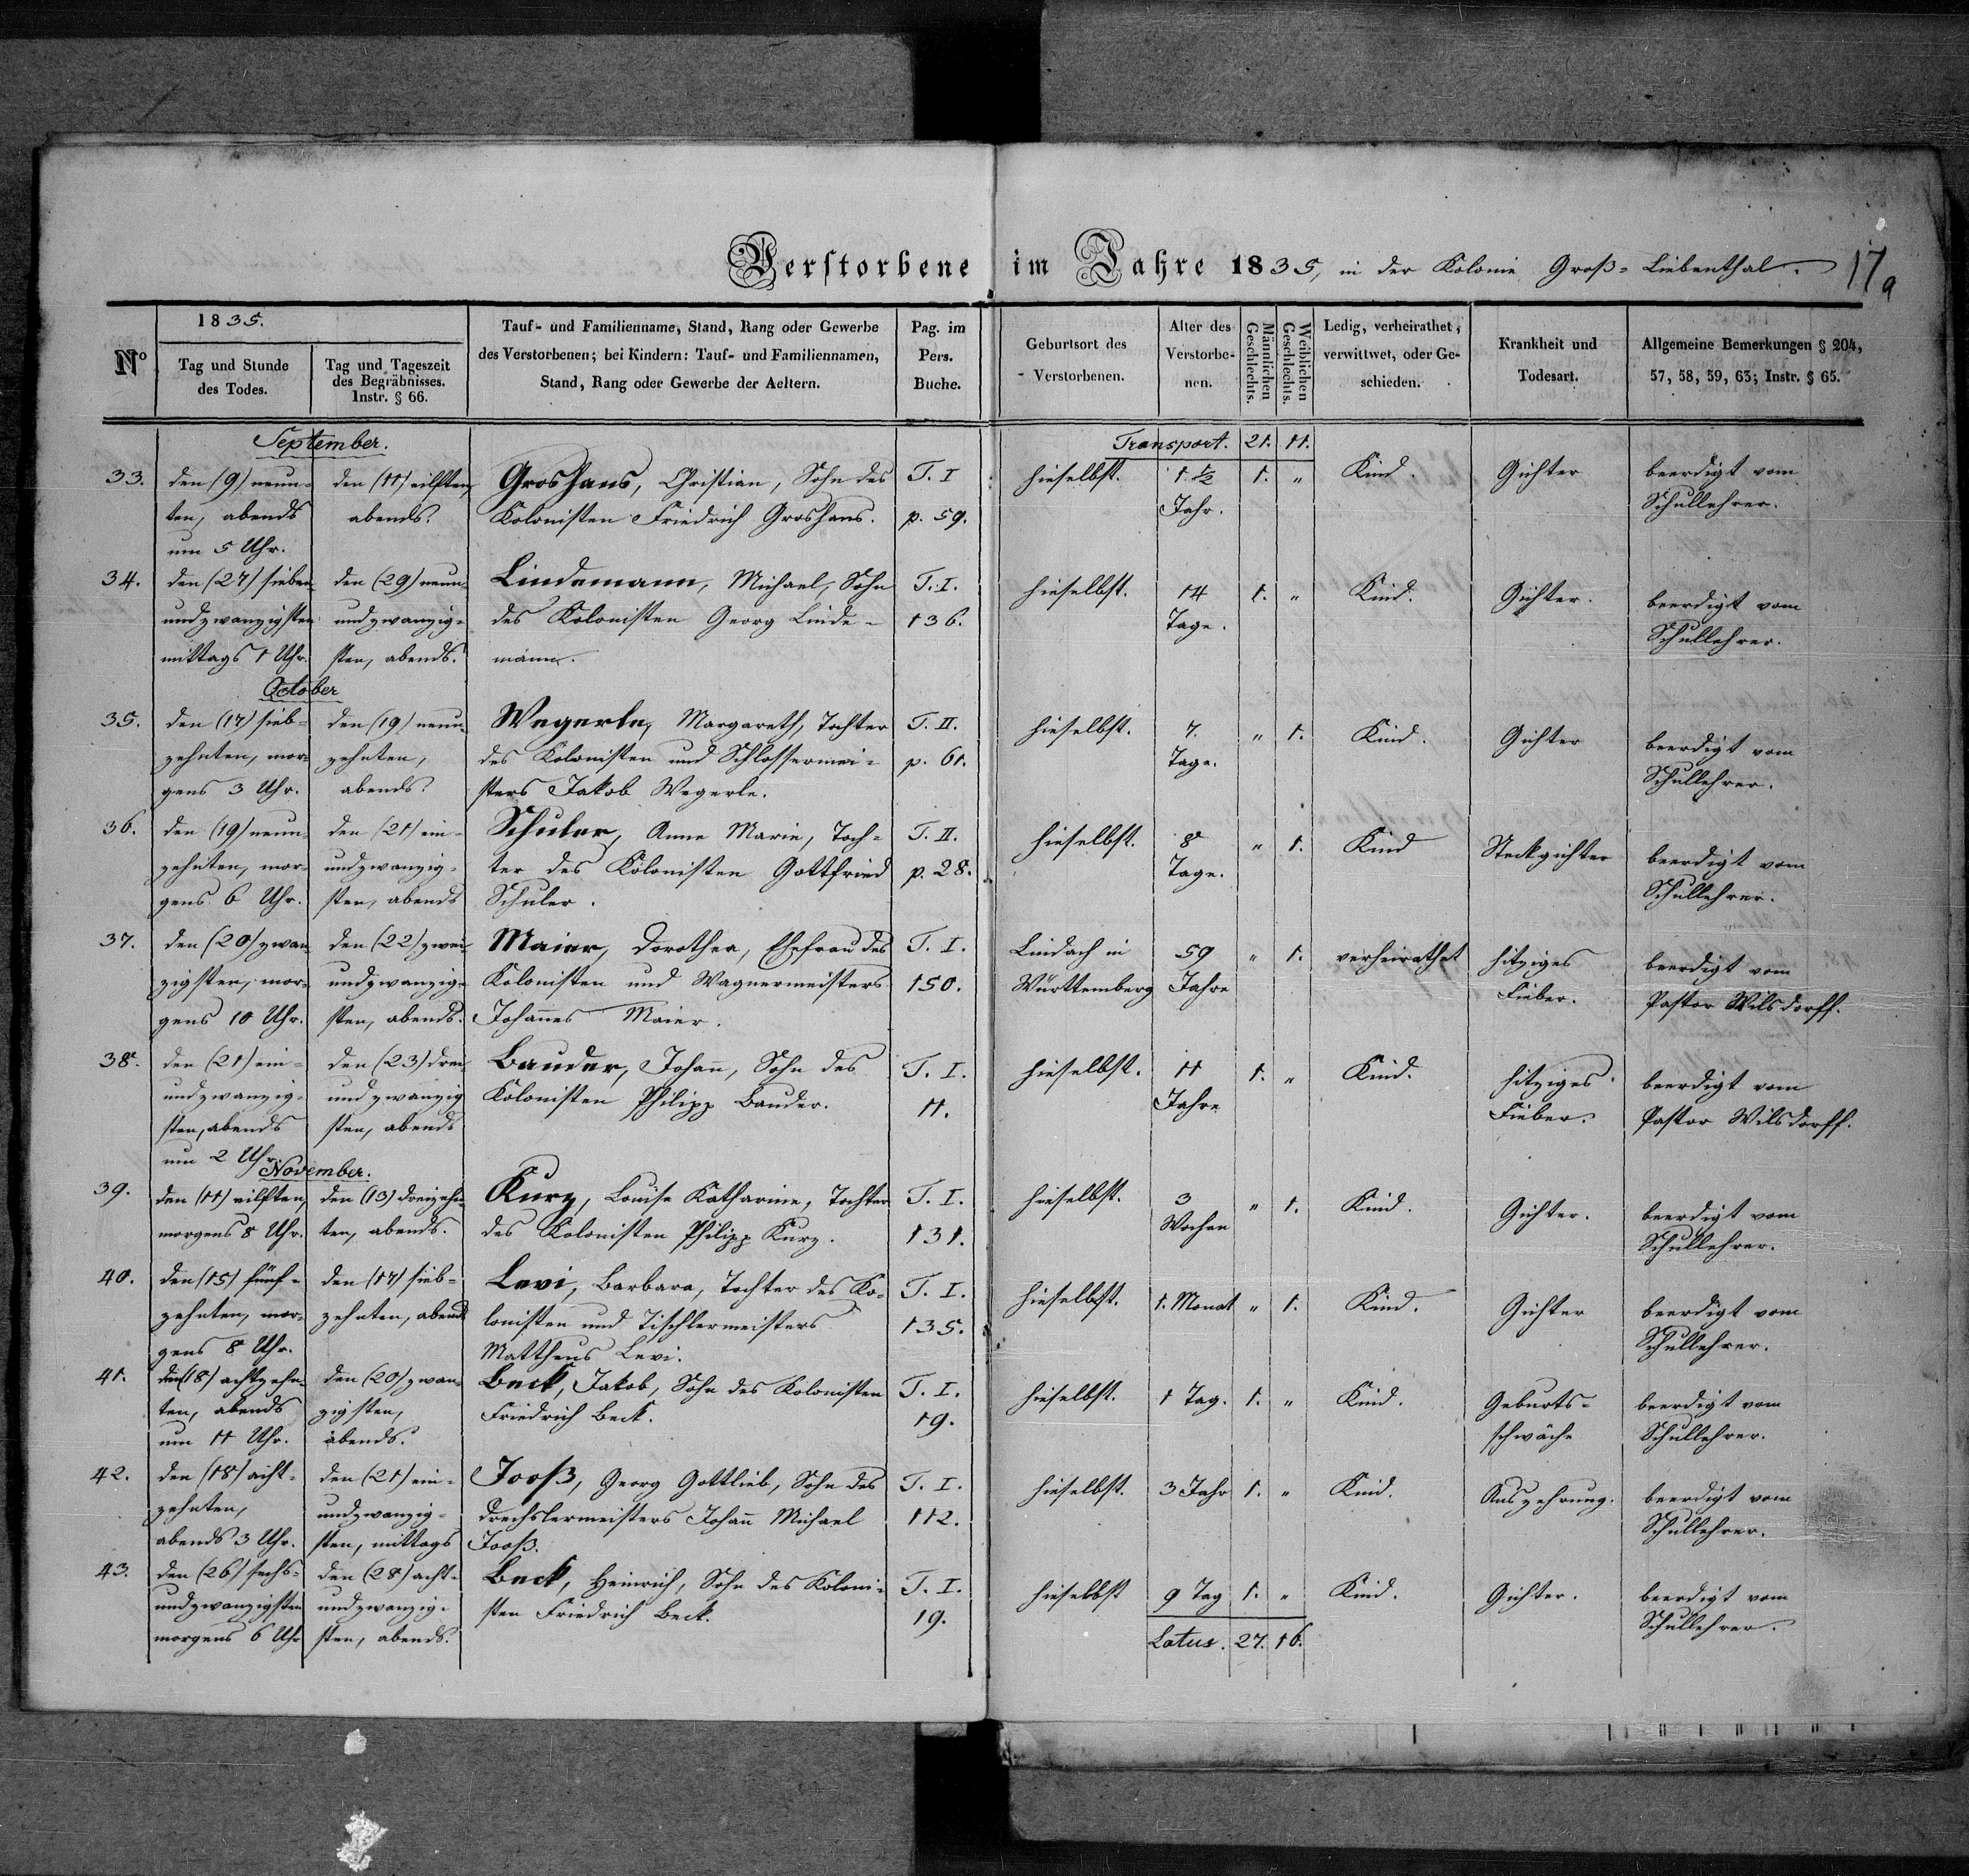 Verstorbene im Jahre 1835, in der Kolonie Groß-Liebenthal.
17a
No
1835.
Tag und Stunde
des Todes.
Tag und Tageszeit
des Begräbnisses.
Instr. § 66.
Tauf- und Familienname, Stand, Rang oder Gewerbe
des Verstorbenen; bei Kindern: Tauf- und Familiennamen,
Stand, Rang oder Gewerbe der Aeltern.
Pag. im
Pers.
Buche.
Geburtsort des
Verstorbenen.
Alter des
Verstorbe-
nen.
Männlichen
Geschlechts.
Weiblichen
Geschlechts.
Ledig, verheirathet,
verwittwet, oder Ge-
schieden.
Krankheit und
Todesart.
Allgemeine Bemerkungen § 204,
57, 58, 59, 63; Instr. § 65.
September.
Transport. 21. 11.
33.
den (9) neun-
ten, abends
um 5 Uhr.
den (11) eilften,
abends.
Groshans, Christian, Sohn des
Kolonisten Friedrich Groshans.
T. I
p. 59.
hieselbst.
1. 1/2
Jahr.
1. "
Kind.
Gichter
beerdigt vom
Schullehrer.
34.
den (27) sieben-
undzwanzigsten
mittags 1 Uhr.
den (29) neun-
undzwanzig-
sten, abends.
Lindemann, Michael, Sohn
des Kolonisten Georg Linde-
mann.
T. I.
136.
hieselbst.
14
Tage.
1. "
Kind.
Gichter.
beerdigt vom
Schullehrer.
October
35.
den (17) sieb-
zehnten, mor-
gens 3 Uhr.
den (19) neun-
zehnten,
abends.
Wegerle, Margareth, Tochter
des Kolonisten und Schlossermei-
sters Jakob Wegerle.
T. II.
p. 61.
hieselbst.
7.
Tage.
" 1.
Kind.
Gichter
beerdigt vom
Schullehrer.
36.
den (19) neun-
zehnten, mor-
gens 6 Uhr.
den (21) ein-
undzwanzig-
sten, abends
Schuler, Anna Maria, Toch-
ter des Kolonisten Gottfried
Schuler.
T. II.
p. 28.
hieselbst.
8
Tage.
" 1.
Kind
Steckgichter
beerdigt vom
Schullehrer.
37.
den (20) zwan-
zigsten, mor-
gens 10 Uhr.
den (22) zwei-
undzwanzig-
sten, abends.
Maier, Dorothea, Ehefrau des
Kolonisten und Wagnermeisters
Johannes Maier.
T. I.
150.
Lindach in
Württemberg
59
Jahre
" 1.
verheirathet
hitziges
Fieber.
beerdigt vom
Pastor Wilsdorff.
38.
den (21) ein-
undzwanzig-
sten, abends
um 2 Uhr.
den (23) drei
und zwanzig
sten, abends
Bauder, Johann, Sohn des
Kolonisten Philipp Bauder.
T. I.
11.
hieselbst.
11
Jahre
1. "
Kind.
hitziges
Fieber.
beerdigt vom
Pastor Wilsdorff.
November.
39.
den (11) eilften,
morgens 8 Uhr.
den (13) dreizehn-
ten, abends.
Kurz, Louise Katharina, Tochter
des Kolonisten Philipp Kurz.
T. I.
131.
hieselbst.
3
Wochen
" 1.
Kind.
Gichter.
beerdigt vom
Schullehrer.
40.
den (15) fünf-
zehnten, mor-
gens 8 Uhr.
den (17) sieb-
zehnten, abend
Levi, Barbara, Tochter des Ko-
lonisten und Tischlermeisters
Mattheus Levi.
T. I.
135.
hieselbst.
1. Monat
" 1.
Kind.
Gichter
beerdigt vom
Schullehrer.
41.
den (18) achtzehn-
ten, abends
um 11 Uhr.
den (20) zwan-
zigsten,
abends.
Beck, Jakob, Sohn des Kolonisten
Friedrich Beck.
T. I.
19.
hieselbst.
1 Tag.
1. "
Kind.
Geburts-
schwäche
beerdigt vom
Schullehrer.
42.
den (18) acht-
zehnten,
abends 3 Uhr.
den (21) ein-
undzwanzig-
sten, mittags
Jooß, Georg Gottlieb, Sohn des
Drechslermeisters Johann Michael
Jooß.
T. I.
112.
hieselbst.
3 Jahr
1. "
Kind.
Auszehrung.
beerdigt vom
Schullehrer.
43.
den (26) sechs-
undzwanzigsten
morgens 6 Uhr
den (28) acht-
undzwanzig-
sten, abends.
Beck, Heinrich, Sohn des Koloni-
sten Friedrich Beck.
T. I.
19.
hieselbst
9 Tag
1. "
Kind.
Gichter.
beerdigt vom
Schullehrer.
Latus. 27. 16.